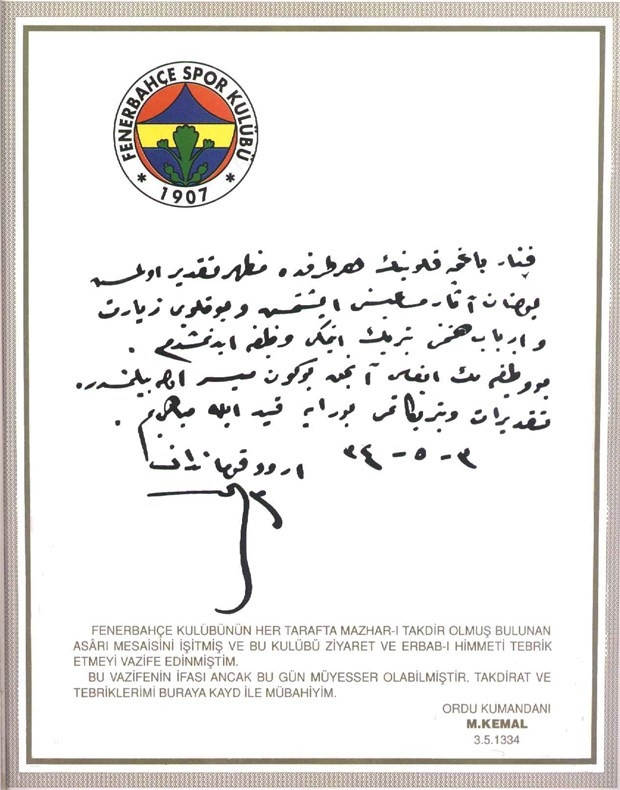 FENERBAHÇE SPOR KULÜBÜ
* 1907 *
فنار باغچه قلوبنك هر طرفده مظهر تقدير اولمش
بولنان آثار مساعيسنى ايشتمش و بو قلوبى زيارت
و ارباب همتنى تبريك ايتمكى وظيفه ايدنمشدم .
بو وظيفه نك ايفاسى آنجق بوكون ميسر اوله بيلمشدر.
تقديرات و تبريكاتمى بورايه قيد ايله مباهى يم .
٣ - ٥ - ٣٤
اردو قوماندانى
FENERBAHÇE KULÜBÜNÜN HER TARAFTA MAZHAR-I TAKDİR OLMUŞ BULUNAN
ASÂRI MESAİSİNİ İŞİTMİŞ VE BU KULÜBÜ ZİYARET VE ERBAB-I HİMMETİ TEBRİK
ETMEYİ VAZİFE EDİNMİŞTİM.
BU VAZİFENİN İFASI ANCAK BU GÜN MÜYESSER OLABİLMİŞTİR. TAKDİRAT VE
TEBRİKLERİMİ BURAYA KAYD İLE MÜBAHİYİM.
ORDU KUMANDANI
M.KEMAL
3.5.1334